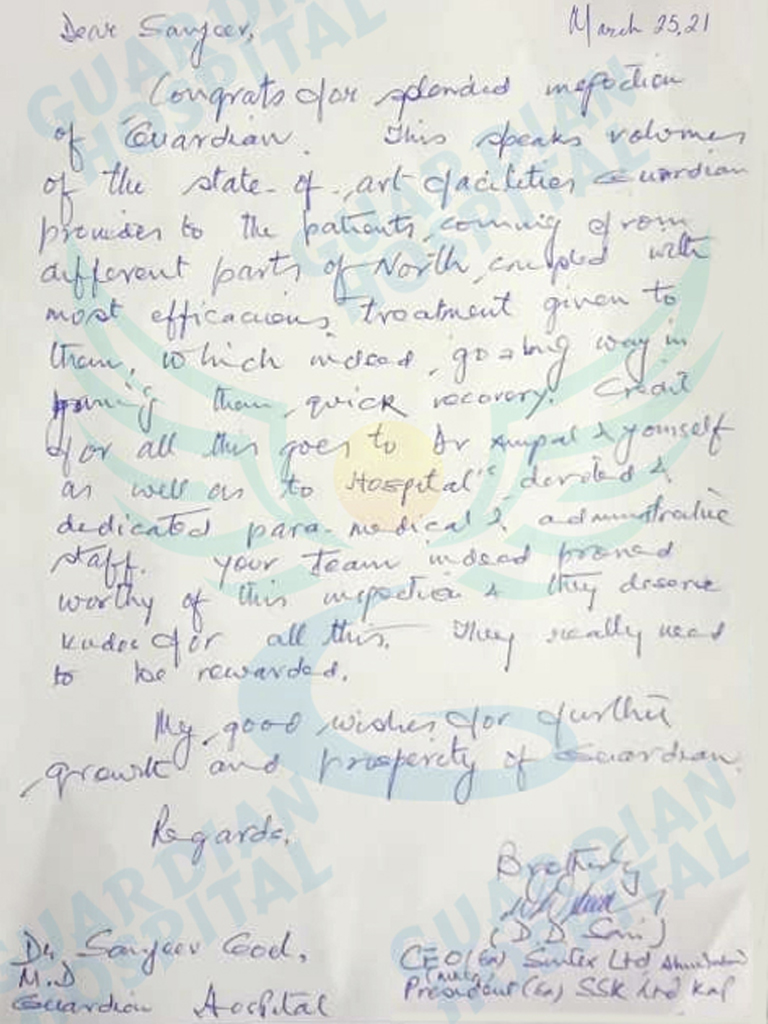 March 25,21
Dear Sanjeev,
Congrats for splended inspection
of Guardian. This speaks volumes
of the state-of-art facilities Guardian
provides to the patients, coming from
different parts of North, coupled with
most efficacious, treatment given to
them, which indeed, go a long way in
their quick recovery. Credit
for all this goes to Dr & yourself
as well as to Hospital's devoted &
dedicated para-medical & administrative
staff. Your team indeed proved
worthy of this inspection & they deserve
kudos for all this. They really need
to be rewarded.
My good wishes for further
growth and prosperity of Guardian.
Regards,
Brotherly
(D D )
CEO (Ex) Sintex Ltd
President (Ex) SSK Ltd
Dr Sanjeev Goel,
M.D
Guardian Hospital
GUARDIAN
HOSPITAL
GUARDIAN
HOSPITAL
GUARDIAN
HOSPITAL
GUARDIAN
HOSPITAL